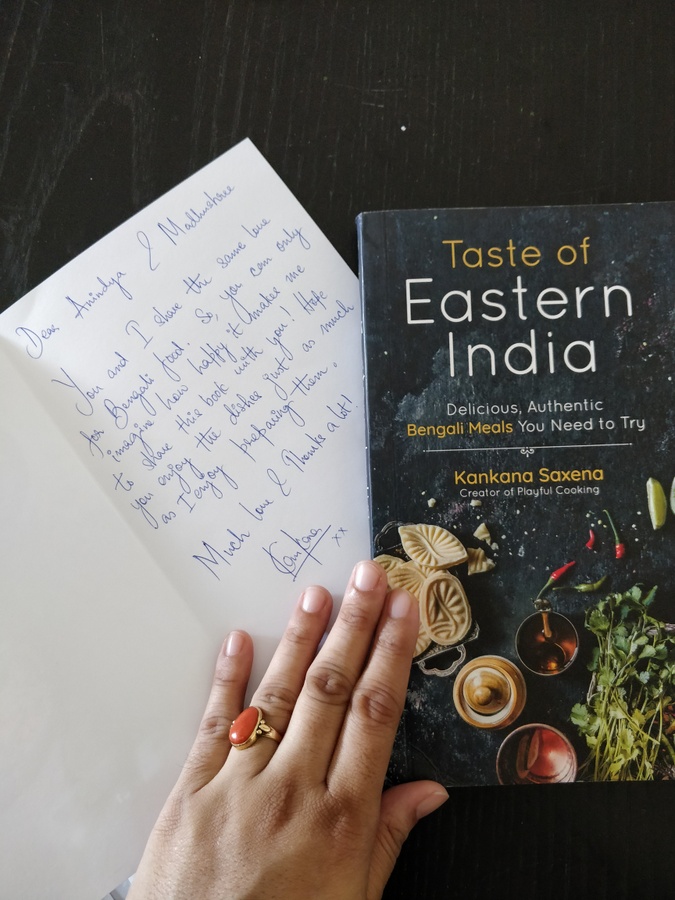 Dear Anindya & Madhushree
You and I share the same love
for Bengali food. So, you can only
imagine how happy it makes me
to share this book with you! Hope
you enjoy the dishes just as much
as I enjoy preparing them.
Much love & Thanks a lot!
Kankana
xx
Taste of
Eastern
India
Delicious, Authentic
Bengali Meals You Need to Try
Kankana Saxena
Creator of Playful Cooking